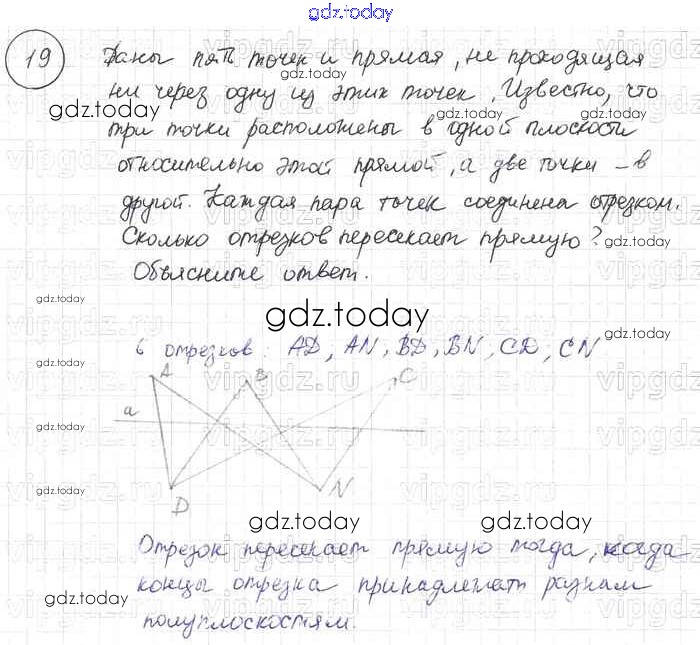 gdz.today
19 Даны пять точек и прямая, не проходящая
ни через одну из этих точек. Известно, что
три точки расположены в одной плоскости
относительно этой прямой, а две точки – в
другой. Каждая пара точек соединена отрезком.
Сколько отрезков пересекает прямую?
Объясните ответ.
gdz.today
6 отрезков: AD, AN, BD, BN, CD, CN
A B C
a
D N
gdz.today gdz.today
Отрезок пересекает прямую тогда, когда
концы отрезка принадлежат разным
полуплоскостям.